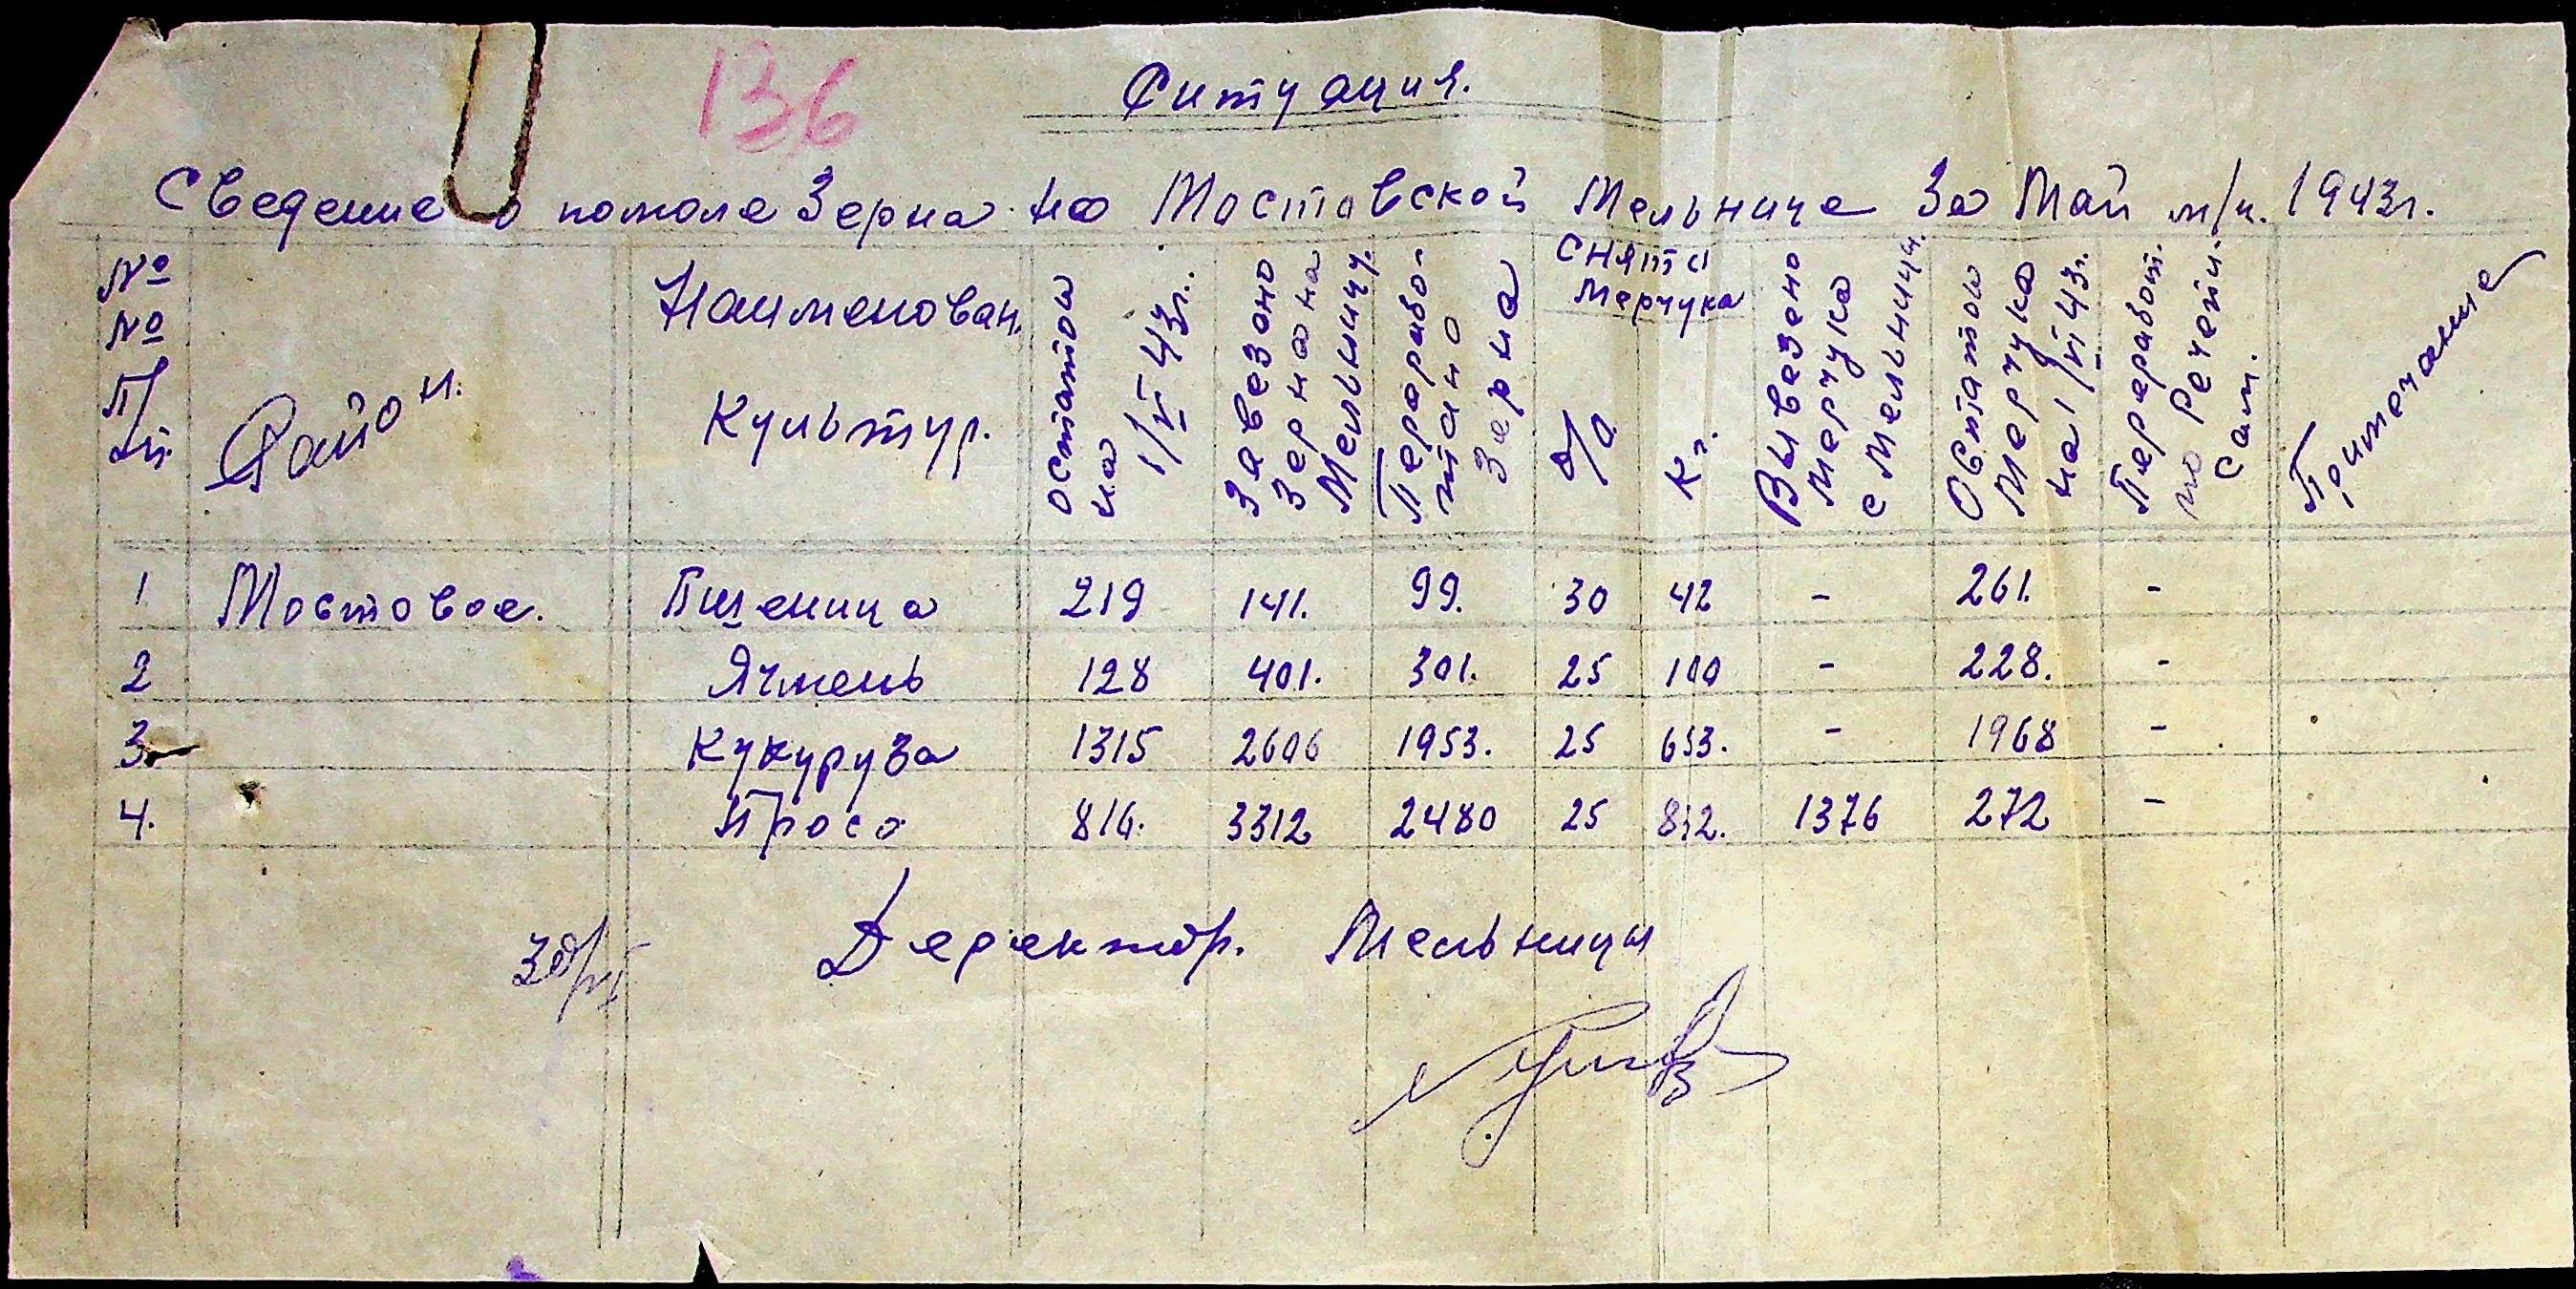 136
Ситуация.
Сведение о помоле Зерна на Мостовской Мельнице За Май м/ц. 1943г.
№ № П/п.
Район.
Наименован. Культур.
Остаток на 1/V 43г.
Завезено Зерна на Мельницу.
Переработано Зерна
Снято Мерчука
%
Кг.
Вывезено Мерчука с Мельницы.
Остаток Мерчука на 1/VI 43г.
Переработ. по
Примечание
1 Мостовое. Пшеница 219 141. 99. 30 42 - 261. -
2 Ячмень 128 401. 301. 25 100 - 228. -
3 Кукуруза 1315 2606 1953. 25 653. - 1968 -
4. Просо 816. 3312 2480 25 832. 1376 272 -
Деректор. Мельницы